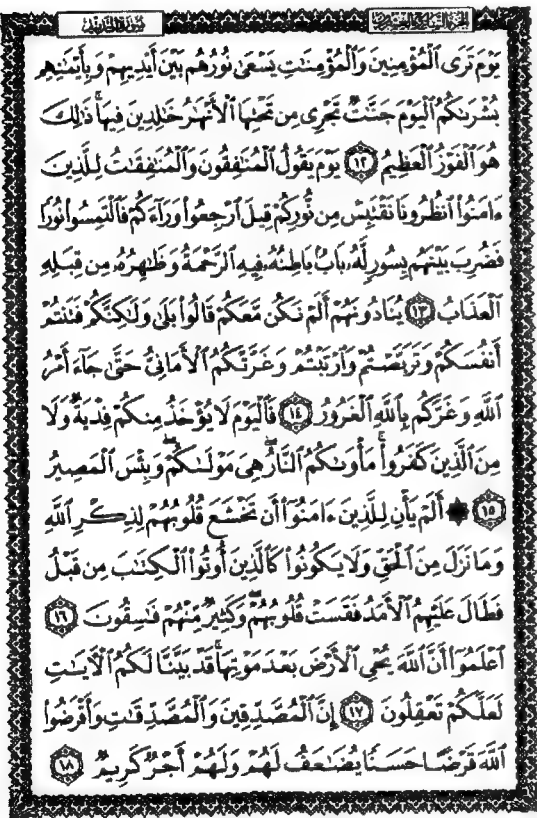 سورة الحديد
الجزء السابع والعشرون
يَوْمَ تَرَى ٱلْمُؤْمِنِينَ وَٱلْمُؤْمِنَٰتِ يَسْعَىٰ نُورُهُم بَيْنَ أَيْدِيهِمْ وَبِأَيْمَٰنِهِم
بُشْرَىٰكُمُ ٱلْيَوْمَ جَنَّٰتٌ تَجْرِى مِن تَحْتِهَا ٱلْأَنْهَٰرُ خَٰلِدِينَ فِيهَا ۚ ذَٰلِكَ
هُوَ ٱلْفَوْزُ ٱلْعَظِيمُ ١٢ يَوْمَ يَقُولُ ٱلْمُنَٰفِقُونَ وَٱلْمُنَٰفِقَٰتُ لِلَّذِينَ
ءَامَنُوا۟ ٱنظُرُونَا نَقْتَبِسْ مِن نُّورِكُمْ قِيلَ ٱرْجِعُوا۟ وَرَآءَكُمْ فَٱلْتَمِسُوا۟ نُورًا
فَضُرِبَ بَيْنَهُم بِسُورٍ لَّهُۥ بَابٌۢ بَاطِنُهُۥ فِيهِ ٱلرَّحْمَةُ وَظَٰهِرُهُۥ مِن قِبَلِهِ
ٱلْعَذَابُ ١٣ يُنَادُونَهُمْ أَلَمْ نَكُن مَّعَكُمْ قَالُوا۟ بَلَىٰ وَلَٰكِنَّكُمْ فَتَنتُمْ
أَنفُسَكُمْ وَتَرَبَّصْتُمْ وَٱرْتَبْتُمْ وَغَرَّتْكُمُ ٱلْأَمَانِىُّ حَتَّىٰ جَآءَ أَمْرُ
ٱللَّهِ وَغَرَّكُم بِٱللَّهِ ٱلْغَرُورُ ١٤ فَٱلْيَوْمَ لَا يُؤْخَذُ مِنكُمْ فِدْيَةٌ وَلَا
مِنَ ٱلَّذِينَ كَفَرُوا۟ ۚ مَأْوَىٰكُمُ ٱلنَّارُ ۖ هِىَ مَوْلَىٰكُمْ ۖ وَبِئْسَ ٱلْمَصِيرُ
١٥ ۞ أَلَمْ يَأْنِ لِلَّذِينَ ءَامَنُوٓا۟ أَن تَخْشَعَ قُلُوبُهُمْ لِذِكْرِ ٱللَّهِ
وَمَا نَزَلَ مِنَ ٱلْحَقِّ وَلَا يَكُونُوا۟ كَٱلَّذِينَ أُوتُوا۟ ٱلْكِتَٰبَ مِن قَبْلُ
فَطَالَ عَلَيْهِمُ ٱلْأَمَدُ فَقَسَتْ قُلُوبُهُمْ ۖ وَكَثِيرٌ مِّنْهُمْ فَٰسِقُونَ ١٦
ٱعْلَمُوٓا۟ أَنَّ ٱللَّهَ يُحْىِ ٱلْأَرْضَ بَعْدَ مَوْتِهَا ۚ قَدْ بَيَّنَّا لَكُمُ ٱلْءَايَٰتِ
لَعَلَّكُمْ تَعْقِلُونَ ١٧ إِنَّ ٱلْمُصَّدِّقِينَ وَٱلْمُصَّدِّقَٰتِ وَأَقْرَضُوا۟
ٱللَّهَ قَرْضًا حَسَنًا يُضَٰعَفُ لَهُمْ وَلَهُمْ أَجْرٌ كَرِيمٌ ١٨